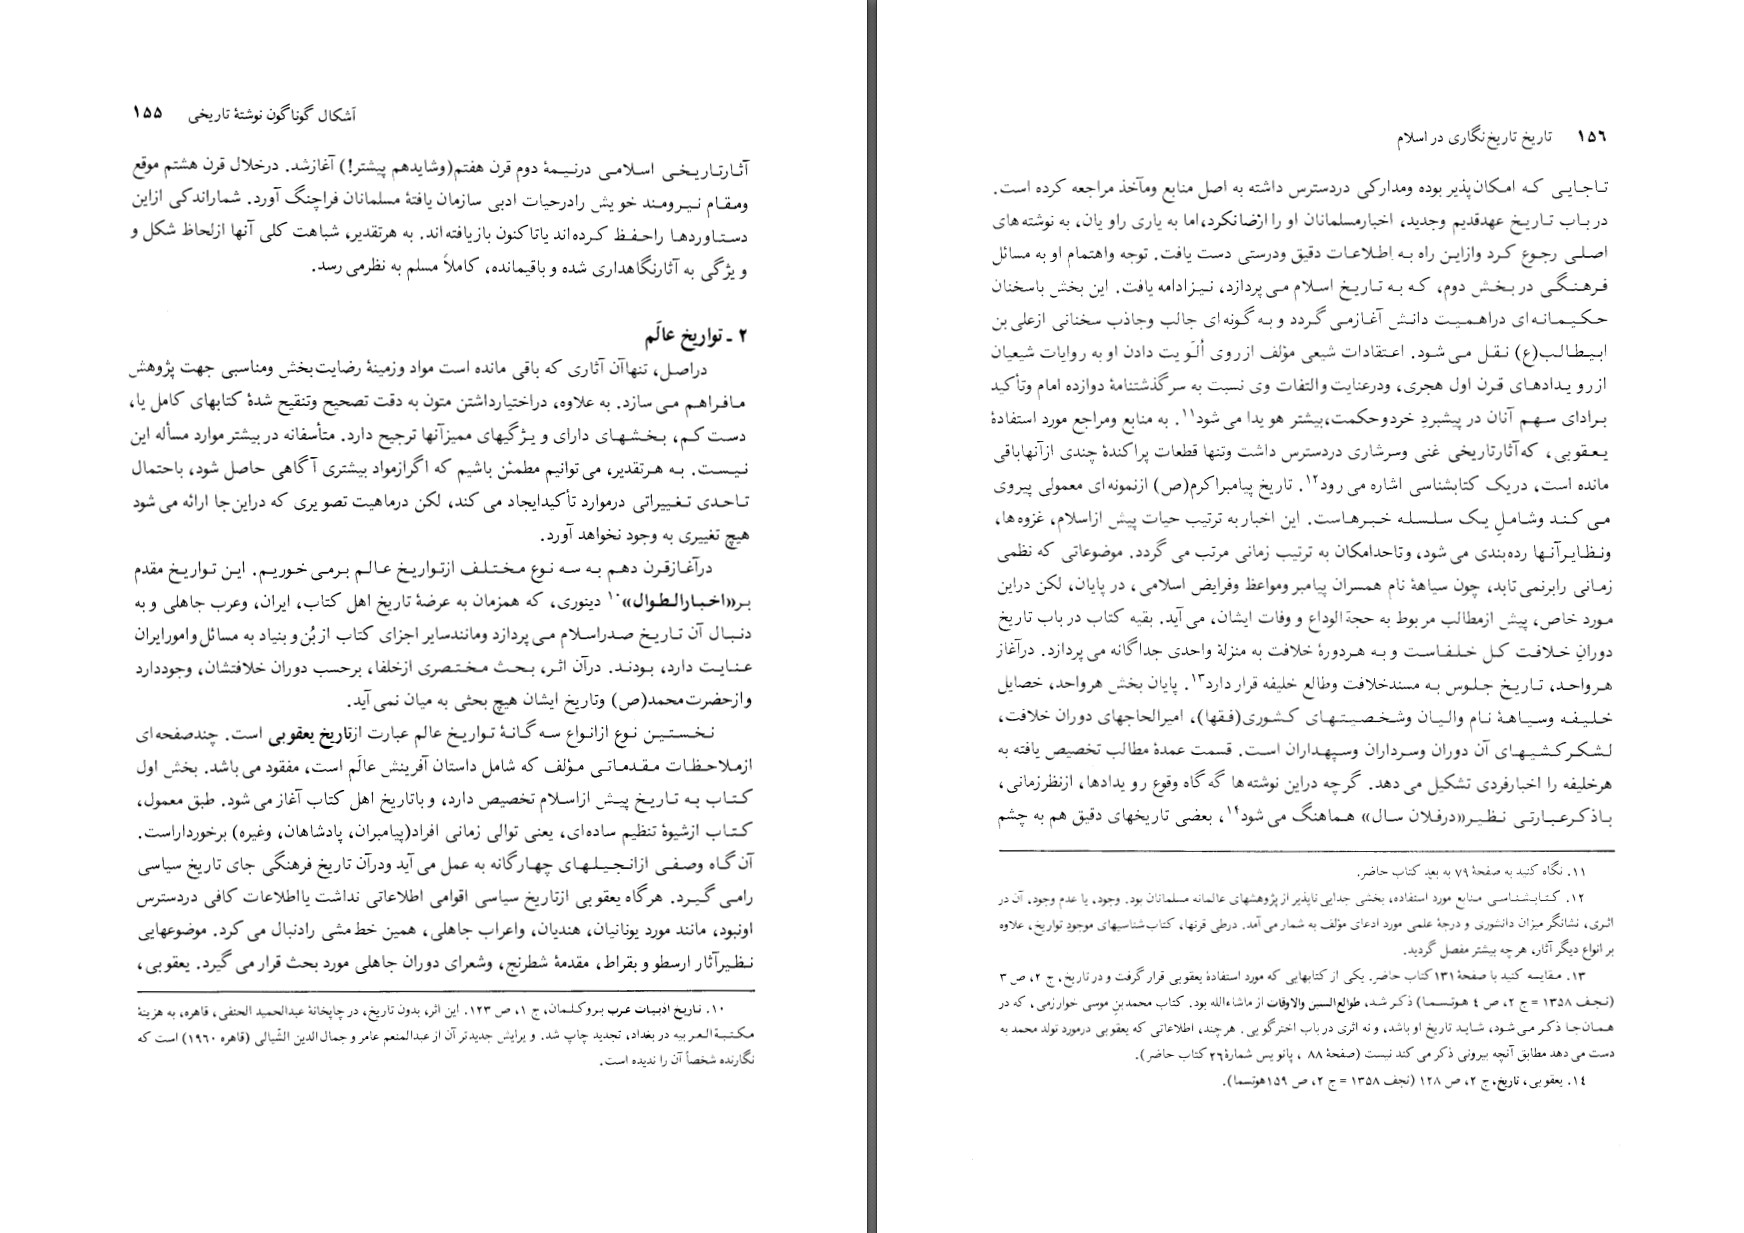 اَشکال گوناگون نوشتهٔ تاریخی ۱۵۵
آثارتاریخی اسلامی درنیمهٔ دوم قرن هفتم(وشایدهم پیشتر!) آغازشد. درخلال قرن هشتم موقع
ومقام نیرومند خویش رادرحیات ادبی سازمان یافتهٔ مسلمانان فراچنگ آورد. شماراندکی ازاین
دستاوردها راحفظ کرده‌اند یاتاکنون بازیافته‌اند. به هرتقدیر، شباهت کلی آنها ازلحاظ شکل و
ویژگی به آثارنگاهداری شده و باقیمانده، کاملاً مسلم به نظرمی رسد.
۲ ـ تواریخ عالَم
دراصل، تنهاآن آثاری که باقی مانده است مواد وزمینهٔ رضایت‌بخش ومناسبی جهت پژوهش
مافراهم می سازد. به علاوه، دراختیارداشتن متون به دقت تصحیح وتنقیح شدهٔ کتابهای کامل یا،
دست کم، بخشهای دارای ویژگیهای ممیزآنها ترجیح دارد. متأسفانه در بیشتر موارد مسأله این
نیست. به هرتقدیر، می توانیم مطمئن باشیم که اگرازمواد بیشتری آگاهی حاصل شود، باحتمال
تاحدی تغییراتی درموارد تأکیدایجاد می کند، لکن درماهیت تصویری که دراین‌جا ارائه می شود
هیچ تغییری به وجود نخواهد آورد.
درآغازقرن دهم به سه نوع مختلف ازتواریخ عالم برمی خوریم. این تواریخ مقدم
بر«اخبارالطوال»۱۰ دینوری، که همزمان به عرضهٔ تاریخ اهل کتاب، ایران، وعرب جاهلی و به
دنبال آن تاریخ صدراسلام می پردازد ومانندسایر اجزای کتاب از بُن و بنیاد به مسائل وامورایران
عنایت دارد، بودند. درآن اثر، بحث مختصری ازخلفا، برحسب دوران خلافتشان، وجوددارد
وازحضرت‌محمد(ص) وتاریخ ایشان هیچ بحثی به میان نمی آید.
نخستین نوع ازانواع سه گانهٔ تواریخ عالم عبارت ازتاریخ یعقوبی است. چندصفحه‌ای
ازملاحظات مقدماتی مؤلف که شامل داستان آفرینش عالَم است، مفقود می باشد. بخش اول
کتاب به تاریخ پیش ازاسلام تخصیص دارد، و باتاریخ اهل کتاب آغاز می شود. طبق معمول،
کتاب ازشیوهٔ تنظیم ساده‌ای، یعنی توالی زمانی افراد(پیامبران، پادشاهان، وغیره) برخورداراست.
آن گاه وصفی ازانجیلهای چهارگانه به عمل می آید ودرآن تاریخ فرهنگی جای تاریخ سیاسی
رامی گیرد. هرگاه یعقوبی ازتاریخ سیاسی اقوامی اطلاعاتی نداشت یااطلاعات کافی دردسترس
اونبود، مانند مورد یونانیان، هندیان، واعراب جاهلی، همین خط مشی رادنبال می کرد. موضوعهایی
نظیرآثار ارسطو و بقراط، مقدمهٔ شطرنج، وشعرای دوران جاهلی مورد بحث قرار می گیرد. یعقوبی،
۱۰. تاریخ ادبیات عرب بروکلمان، ج ۱، ص ۱۲۳. این اثر، بدون تاریخ، در چاپخانهٔ عبدالحمید الحنفی، قاهره، به هزینهٔ
مکتبةالعربیه در بغداد، تجدید چاپ شد. ویرایش جدیدتر آن از عبدالمنعم عامر و جمال الدین الشّیالی (قاهره ۱۹۶۰) است که
نگارنده شخصاً آن را ندیده است.
۱۵۶ تاریخ تاریخ‌نگاری در اسلام
تاجایی که امکان‌پذیر بوده ومدارکی دردسترس داشته به اصل منابع ومآخذ مراجعه کرده است.
در باب تاریخ عهدقدیم وجدید، اخبارمسلمانان او را ارضانکرد، اما به یاری راو یان، به نوشته‌های
اصلی رجوع کرد وازاین راه به اطلاعات دقیق ودرستی دست یافت. توجه واهتمام او به مسائل
فرهنگی در بخش دوم، که به تاریخ اسلام می پردازد، نیزادامه یافت. این بخش باسخنان
حکیمانه‌ای دراهمیت دانش آغازمی گردد و به گونه‌ای جالب وجاذب سخنانی ازعلی بن
ابیطالب(ع) نقل می شود. اعتقادات شیعی مؤلف ازروی اُلَویت دادن او به روایات شیعیان
ازرویدادهای قرن اول هجری، ودرعنایت والتفات وی نسبت به سرگذشتنامهٔ دوازده امام وتأکید
برادای سهم آنان در پیشبردِ خردوحکمت،بیشتر هویدا می شود۱۱. به منابع ومراجع مورد استفادهٔ
یعقوبی، که‌آثارتاریخی غنی وسرشاری دردسترس داشت وتنها قطعات پراکندهٔ چندی ازآنهاباقی
مانده است، دریک کتابشناسی اشاره می رود۱۲. تاریخ پیامبراکرم(ص) ازنمونه‌ای معمولی پیروی
می کند وشاملِ یک سلسله خبرهاست. این اخبار به ترتیب حیات پیش ازاسلام، غزوه‌ها،
ونظایرآنها رده‌بندی می شود، وتاحدامکان به ترتیب زمانی مرتب می گردد. موضوعاتی که نظمی
زمانی رابرنمی تابد، چون سیاههٔ نام همسران پیامبر ومواعظ وفرایض اسلامی، در پایان، لکن دراین
مورد خاص، پیش ازمطالب مربوط به حجةالوداع و وفات ایشان، می آید. بقیه کتاب در باب تاریخ
دورانِ خلافت کل خلفاست و به هردورهٔ خلافت به منزلهٔ واحدی جداگانه می پردازد. درآغاز
هرواحد، تاریخ جلوس به مسندخلافت وطالع خلیفه قرار دارد۱۳. پایان بخش هرواحد، خصایل
خلیفه وسیاههٔ نام والیان وشخصیتهای کشوری(فقها)، امیرالحاجهای دوران خلافت،
لشکرکشیهای آن دوران وسرداران وسپهداران است. قسمت عمدهٔ مطالب تخصیص یافته به
هرخلیفه را اخبارفردی تشکیل می دهد. گرچه دراین نوشته‌ها گه گاه وقوع رویدادها، ازنظرزمانی،
باذکرعبارتی نظیر«درفلان سال» هماهنگ می شود۱۴، بعضی تاریخهای دقیق هم به چشم
۱۱. نگاه کنید به صفحهٔ ۷۹ به بعد کتاب حاضر.
۱۲. کتابشناسی منابع مورد استفاده، بخشی جدایی ناپذیر از پژوهشهای عالمانه مسلمانان بود. وجود، یا عدم وجود، آن در
اثری، نشانگر میزان دانشوری و درجهٔ علمی مورد ادعای مؤلف به شمار می آمد. درطی قرنها، کتاب‌شناسیهای موجودِ تواریخ، علاوه
بر انواع دیگر آثار، هر چه بیشتر مفصل گردید.
۱۳. مقایسه کنید با صفحهٔ ۱۳۱ کتاب حاضر. یکی از کتابهایی که مورد استفادهٔ یعقوبی قرار گرفت و در تاریخ، ج ۲، ص ۳
(نجف ۱۳۵۸ = ج ۲، ص ٤ هوتسما) ذکر شد، طوالع‌السنین والاوقات از ماشاءالله بود. کتاب محمد بنِ موسی خوارزمی، که در
همان‌جا ذکر می شود، شاید تاریخ او باشد، و نه اثری در باب اخترگویی. هرچند، اطلاعاتی که یعقوبی درمورد تولد محمد به
دست می دهد مطابق آنچه بیرونی ذکر می کند نیست (صفحهٔ ۸۸ ، پانویس شمارهٔ ۲۶ کتاب حاضر).
۱۴. یعقوبی، تاریخ، ج ۲، ص ۱۲۸ (نجف ۱۳۵۸ = ج ۲، ص ۱۵۹ هوتسما).